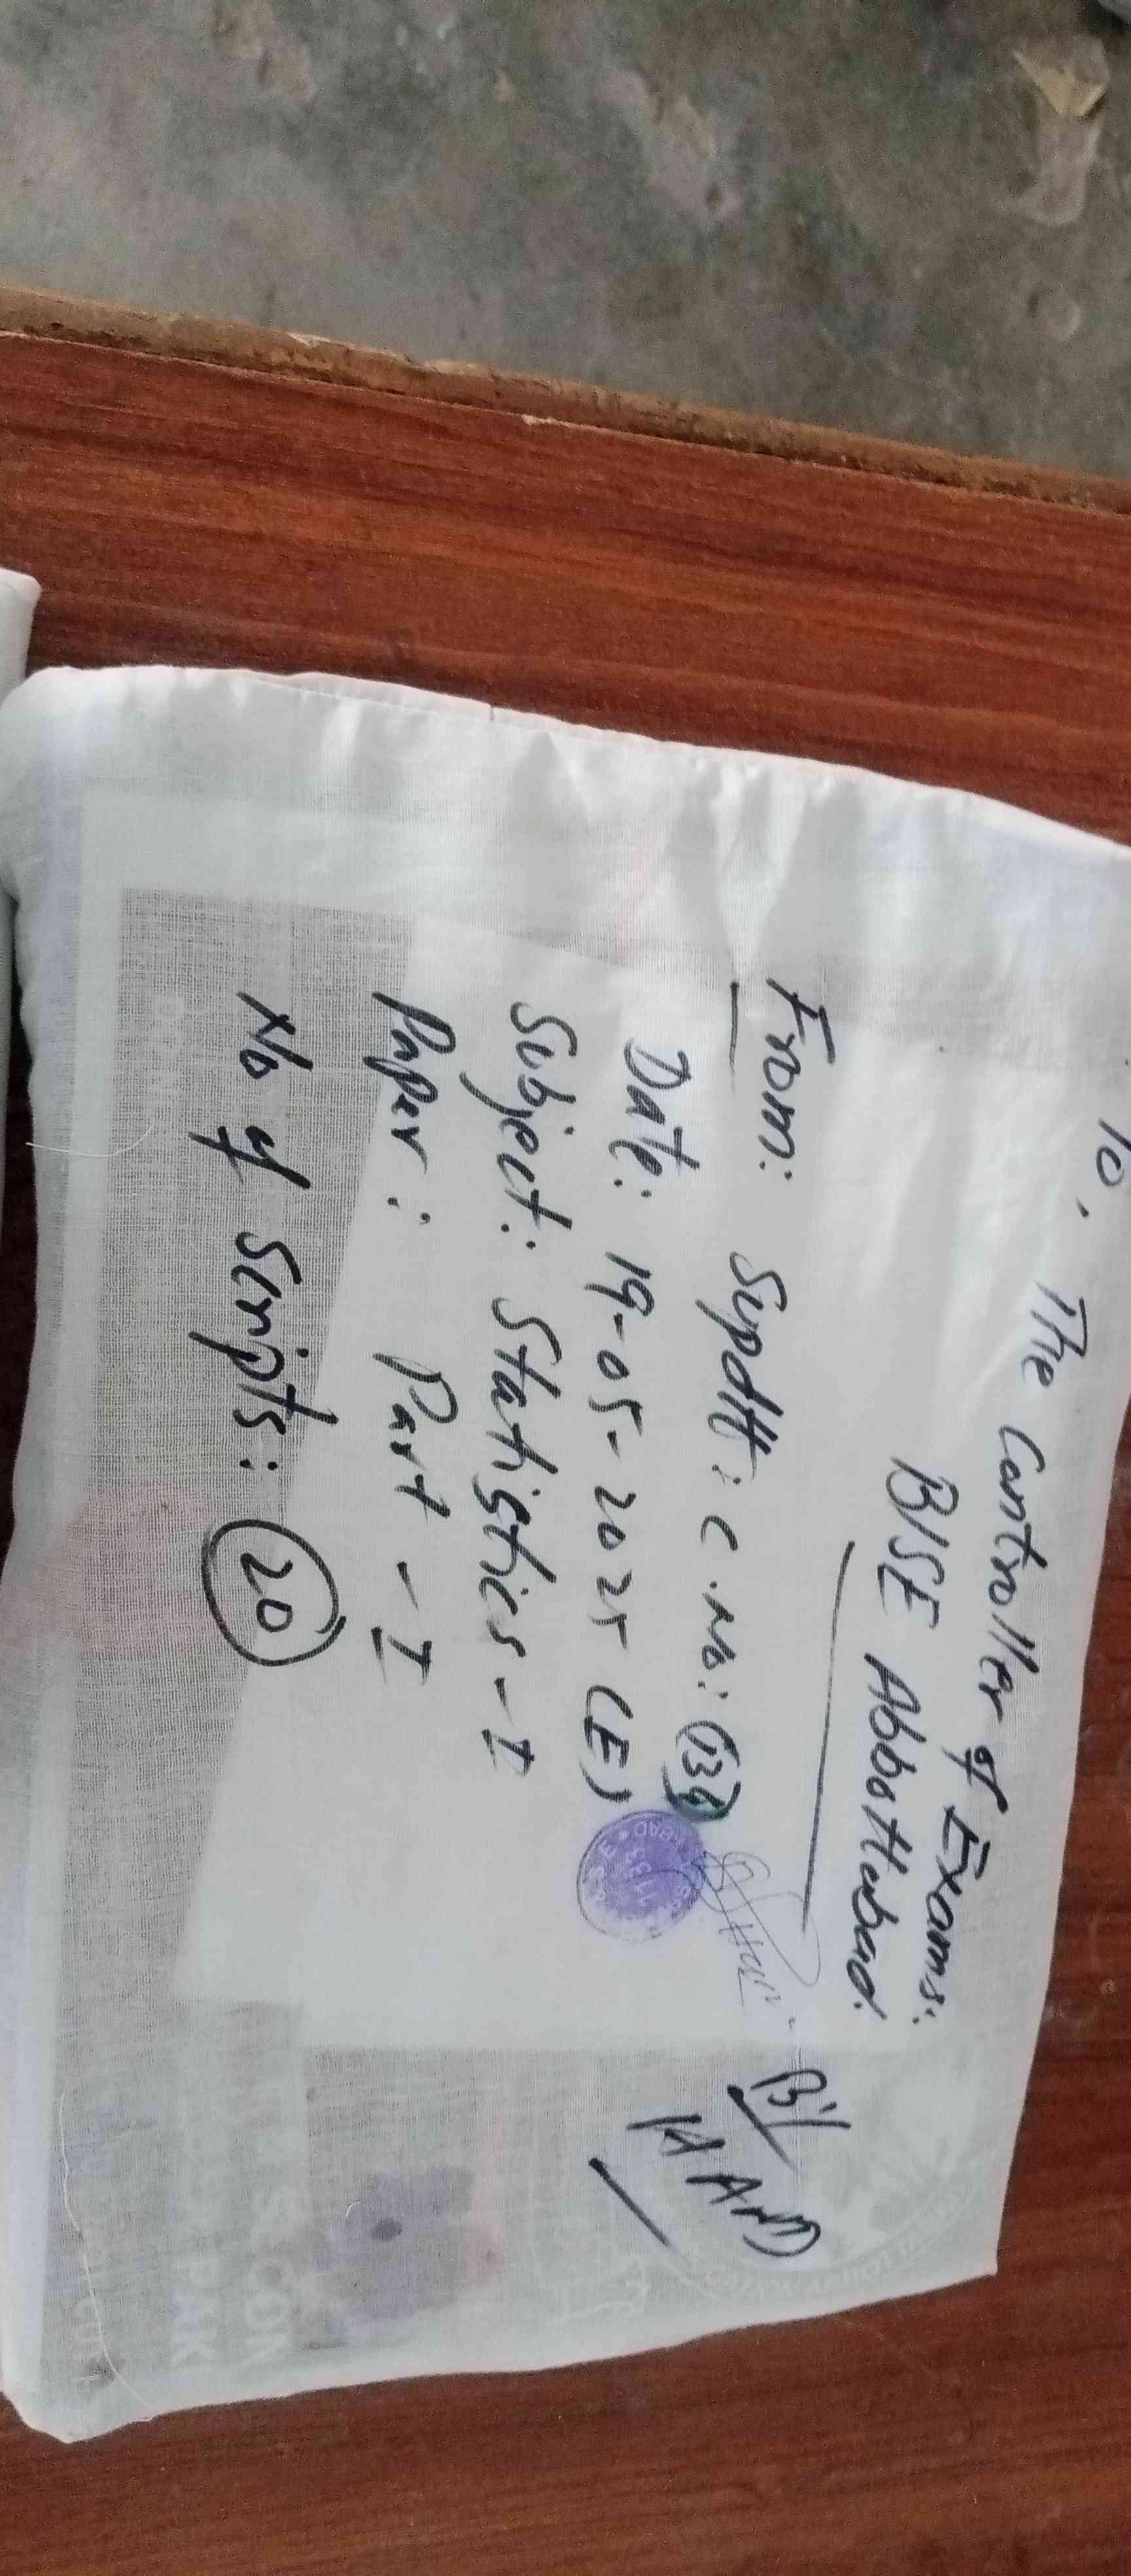 To,
The Controller of Exams:
BISE Abbottabad.
From: Supdtt: C.No:
Date: 19-05-2025 (E)
Subject: Statistics-I
Paper: Part-I
No of Scripts: 20
B/
HAND